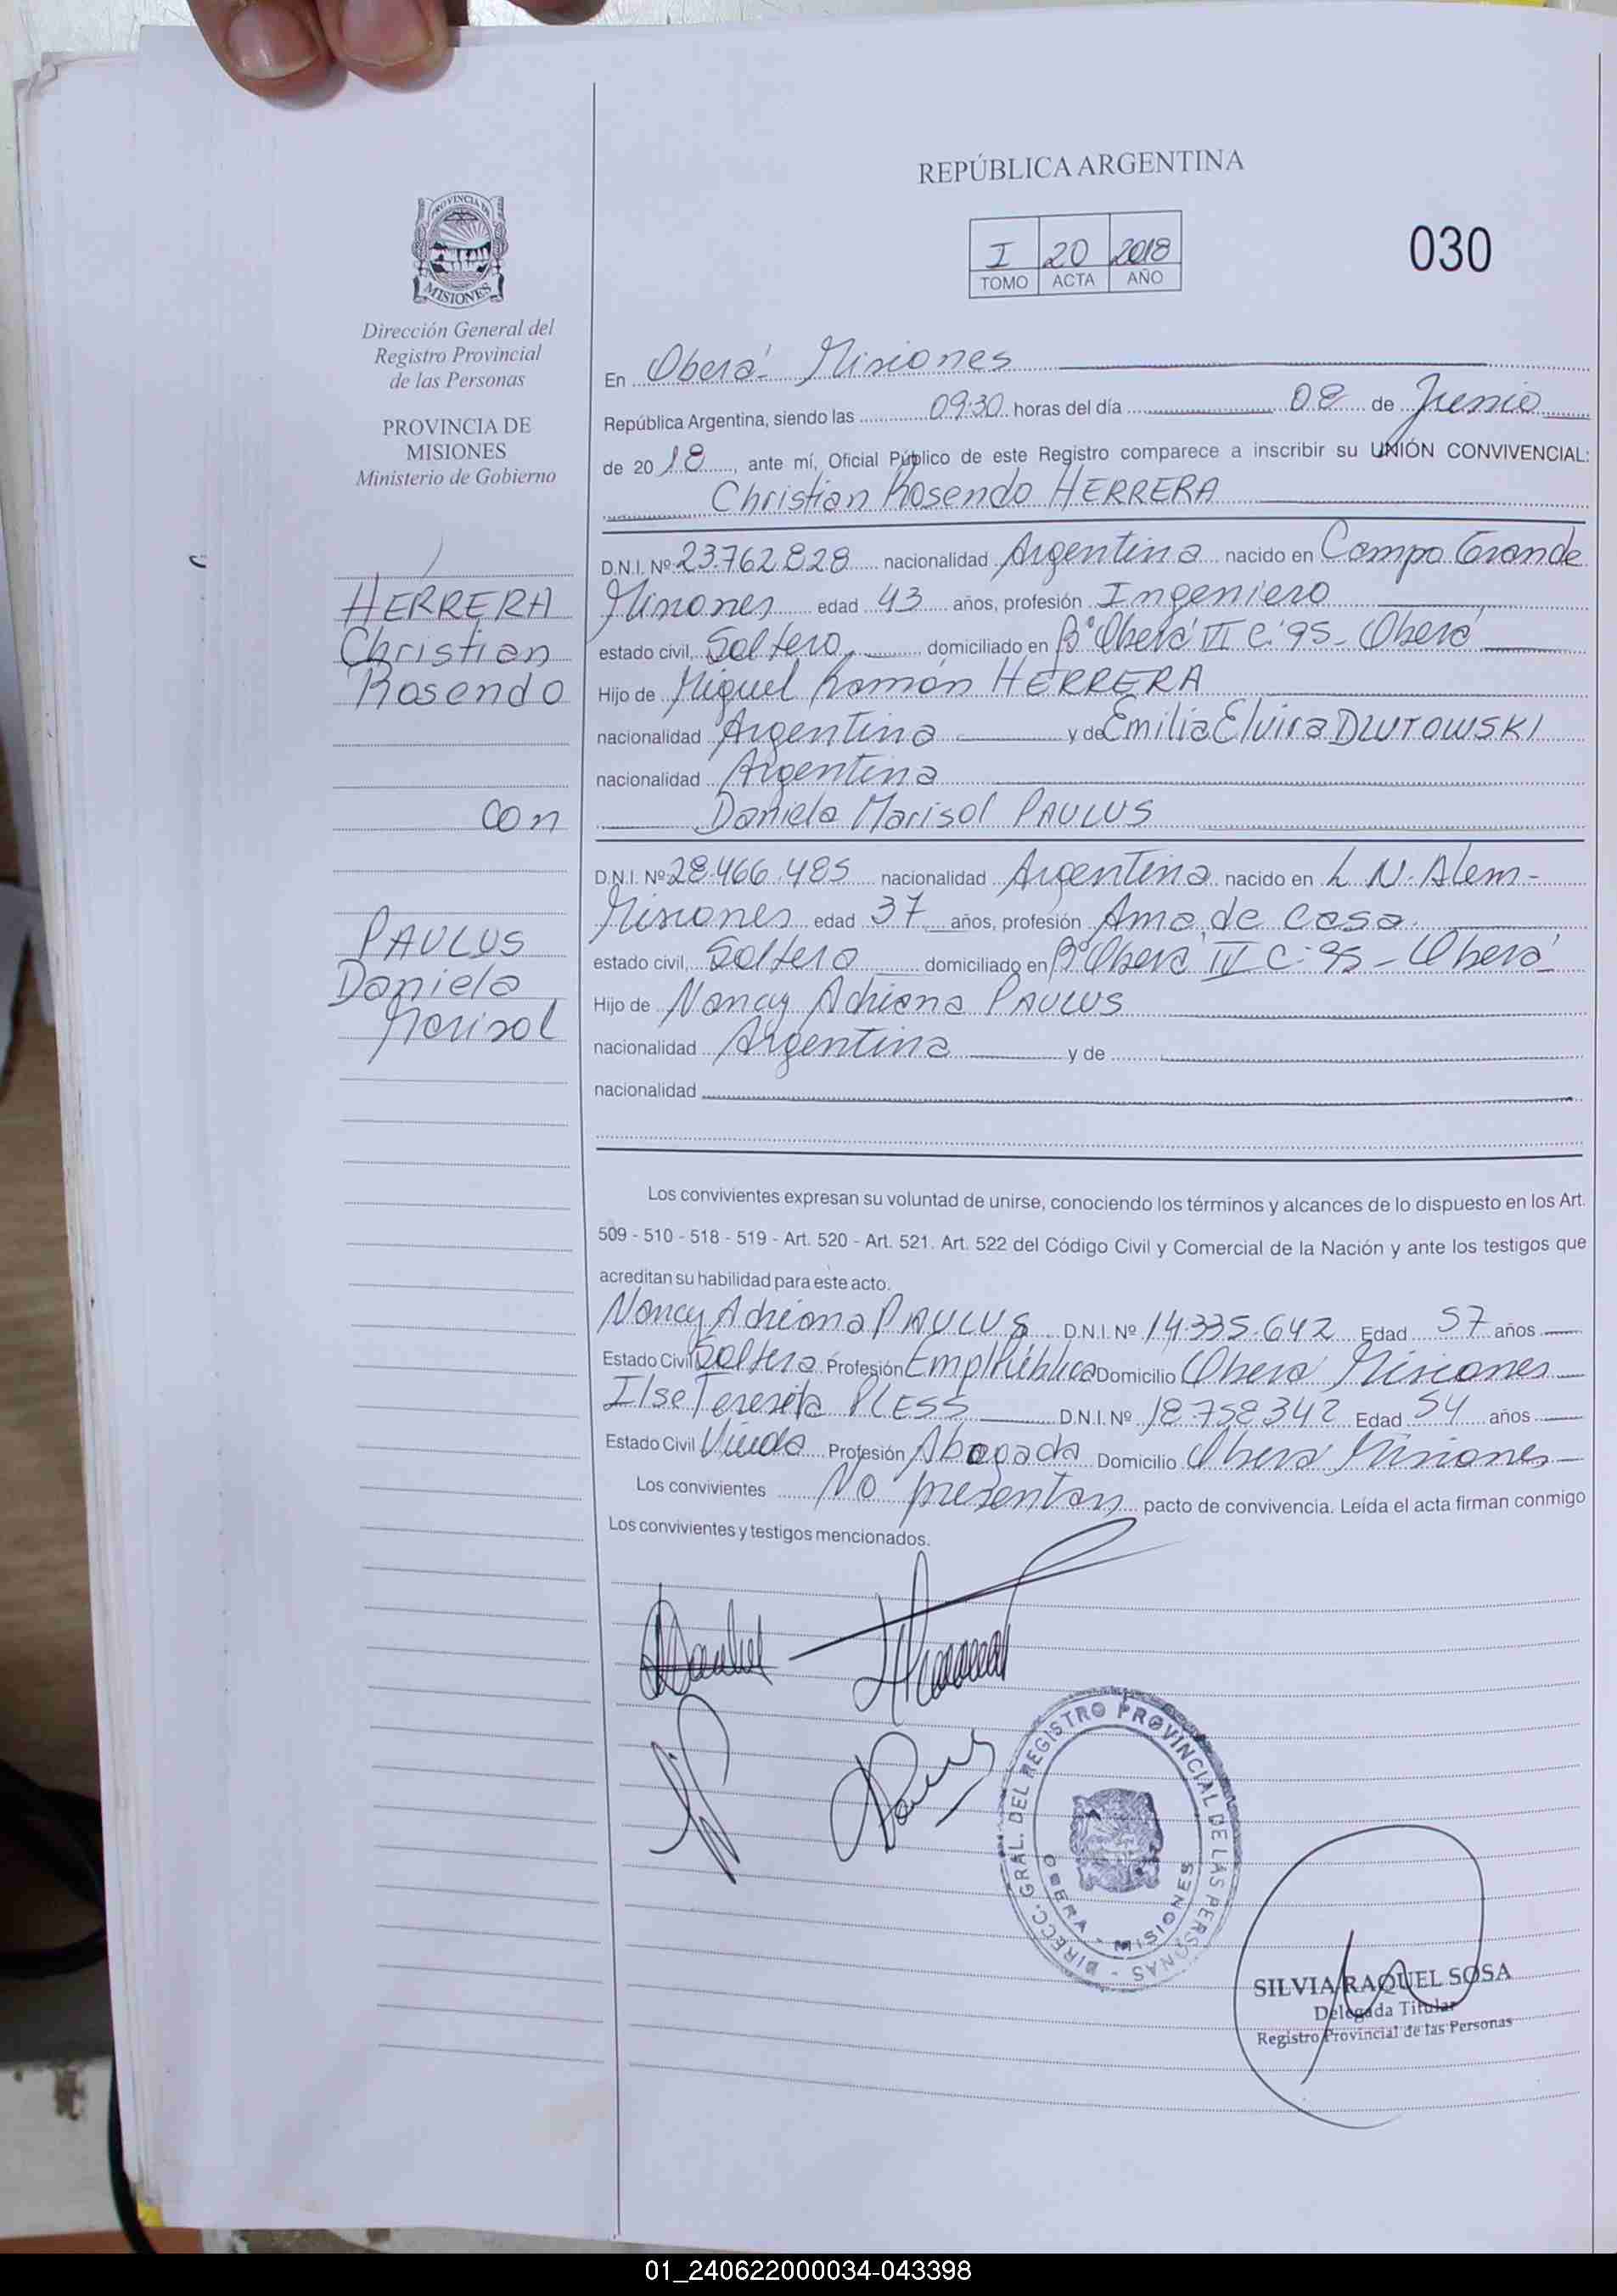 REPÚBLICA ARGENTINA
I 20 2018
TOMO ACTA AÑO
030
PROVINCIA DE
MISIONES
Dirección General del
Registro Provincial
de las Personas
PROVINCIA DE
MISIONES
Ministerio de Gobierno
HERRERA
Christian
Rosendo
con
PAULUS
Daniela
Marisol
En Oberá - Misiones
República Argentina, siendo las 09:30 horas del día 08 de Junio
de 2018, ante mí, Oficial Público de este Registro comparece a inscribir su UNIÓN CONVIVENCIAL:
Christian Rosendo HERRERA
D.N.I. Nº 23.762.828 nacionalidad Argentina nacido en Campo Grande
Misiones edad 43 años, profesión Ingeniero
estado civil, Soltero, domiciliado en Bº Oberá VI C: 95 - Oberá
Hijo de Miguel Ramón HERRERA
nacionalidad Argentina y de Emilia Elvira DLUTOWSKI
nacionalidad Argentina
Daniela Marisol PAULUS
D.N.I. Nº 28.466.485 nacionalidad Argentina nacido en L. N. Alem -
Misiones edad 37 años, profesión Ama de casa.
estado civil, Soltera domiciliado en Bº Oberá IV C: 95 - Oberá
Hijo de Nancy Adriana PAULUS
nacionalidad Argentina y de
nacionalidad
Los convivientes expresan su voluntad de unirse, conociendo los términos y alcances de lo dispuesto en los Art.
509 - 510 - 518 - 519 - Art. 520 - Art. 521. Art. 522 del Código Civil y Comercial de la Nación y ante los testigos que
acreditan su habilidad para este acto.
Nancy Adriana PAULUS D.N.I. Nº 14.335.642 Edad 57 años
Estado Civil Soltera Profesión Empl Pública Domicilio Oberá Misiones
Ilse Teresita PLESS D.N.I. Nº 18.758342 Edad 54 años
Estado Civil Viuda Profesión Abogada Domicilio Oberá Misiones
Los convivientes No presentan pacto de convivencia. Leída el acta firman conmigo
Los convivientes y testigos mencionados.
DIRECC. GRAL. DEL REGISTRO PROVINCIAL DE LAS PERSONAS -
OBERA - MISIONES
SILVIA RAQUEL SOSA
Delegada Titular
Registro Provincial de las Personas
01_240622000034-043398